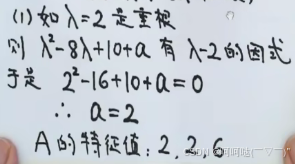 (1) 如 λ=2 是重根
则 λ²-8λ+10+a 有 λ-2 的因式
于是 2²-16+10+a=0
∴ a=2
A 的特征值: 2, 2, 6